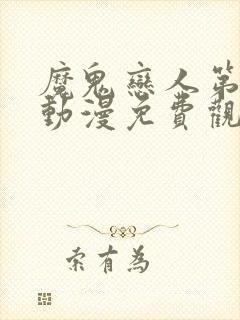 魔鬼戀人第
動漫免費觀
索有為